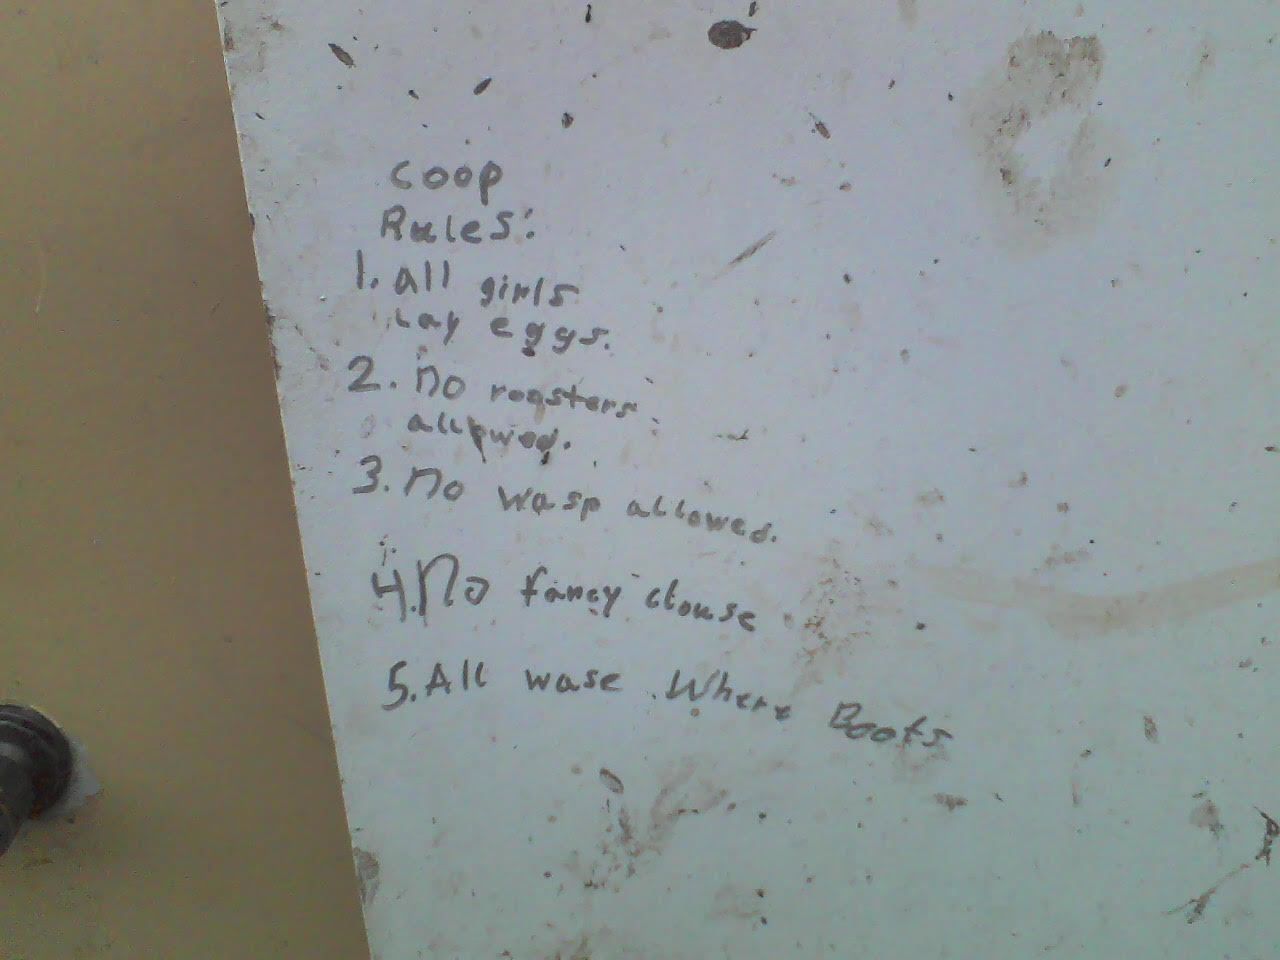 coop
Rules:
1. all girls
lay eggs.
2. no roosters
allowed.
3. no wasp allowed.
4. No fancy clouse
5. All wase Where Boots